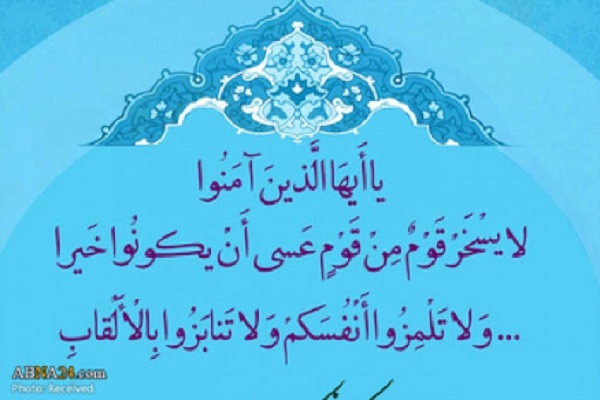 يا أَيهَا الَّذينَ آمَنُوا
لا يسْخَرْ قَوْمٌ مِنْ قَوْمٍ عَسى أَنْ يكونُوا خَيرا
... وَلا تَلْمِزُوا أَنْفُسَكمْ وَلا تَنابَزُوا بِالْأَلْقابِ
ABNA24.com
Photo: Received